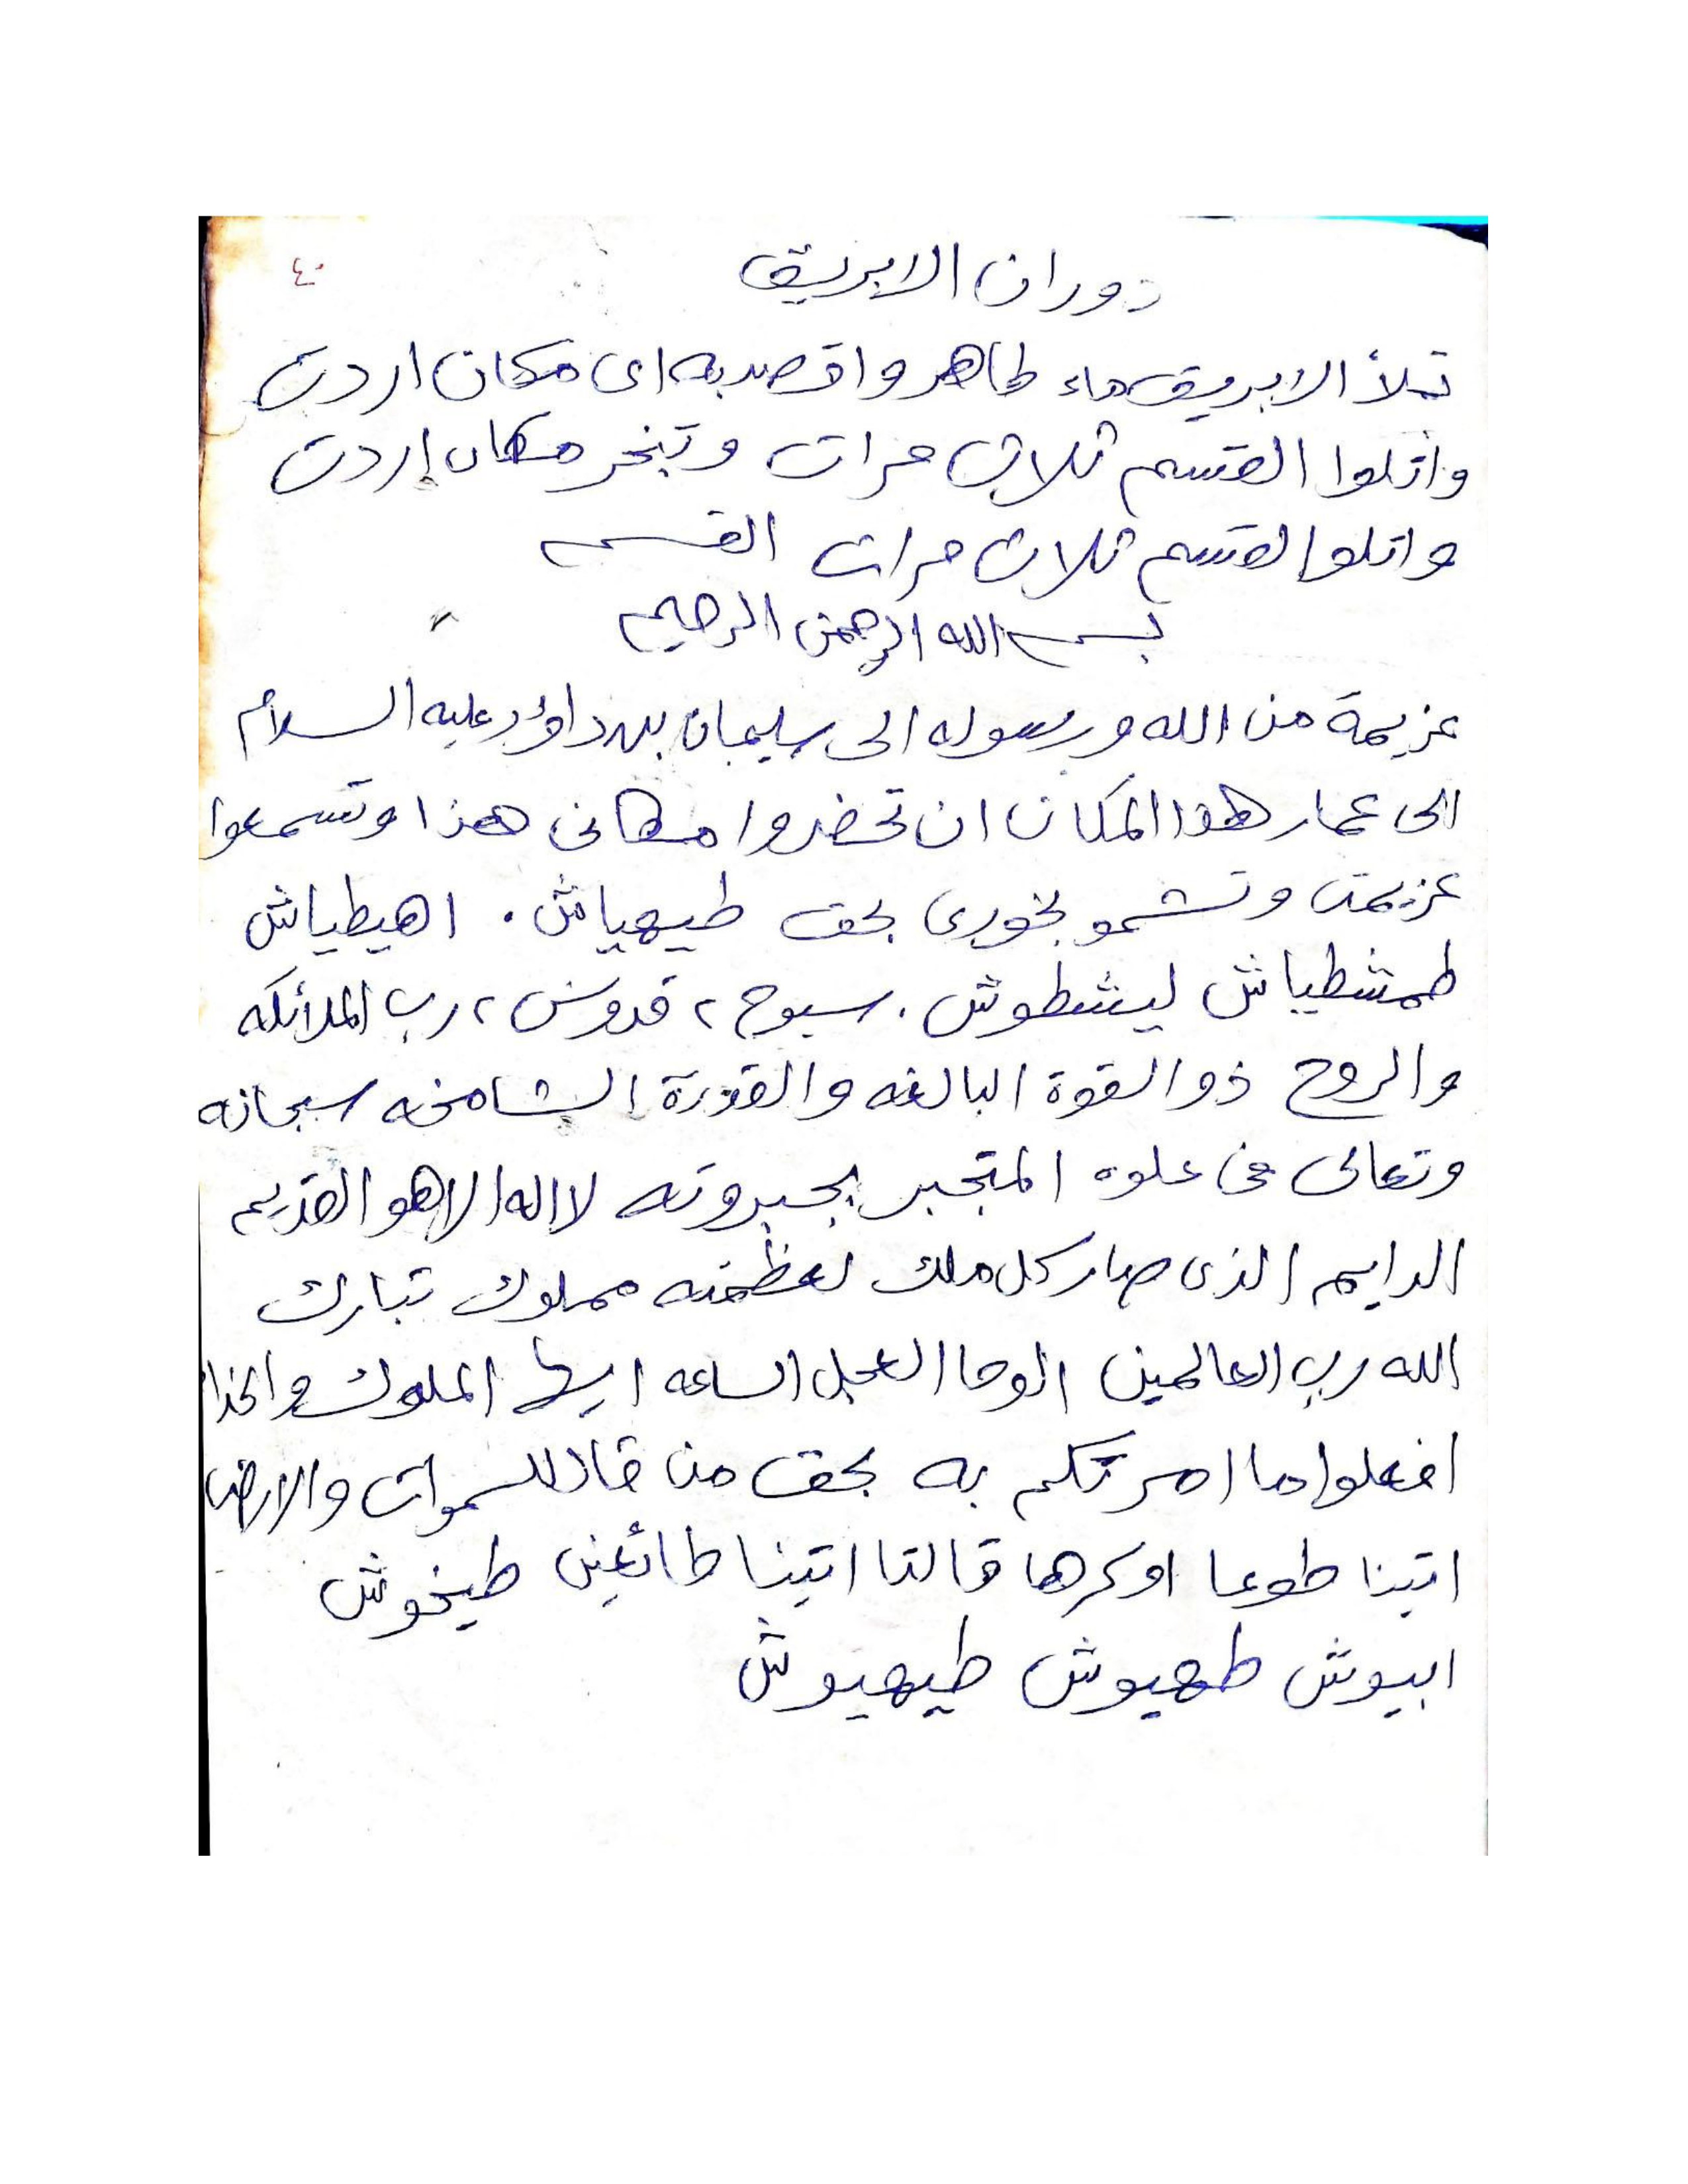 ٤٠
دوران الابريق
تملأ الابريق ماء طاهر واقصد به اى مكان اردت
واتلوا القسم ثلاث مرات وتبخر مكان اردت
واتلوا لقسم ثلاث مرات القسم
بسم الله الرحمن الرحيم
عزيمة من الله ورسوله الى سليمان بن داؤد عليه السلام
الى عمار هذا المكان ان تحضروا مكانى هذا وتسمعوا
عزيمتى وتشمو بخورى بحق طيهياش . اهيطياش
طمشطياش ليشطوش . سبوح ، قدوس ، رب الملائكه
والروح ذو القوة البالغه والقدرة الشامخه سبحانه
وتعالى فى علوه المتجبر بجبروته لا اله الا هو القديم
الدايم الذى صار كل ملك لعظمته مملوك تبارك
الله رب العالمين الوحا العجل الساعه ايها الملوك والخدا
افعلوا ما امرتكم به بحق من قال للسموات والارض
اتينا طوعا او كرها قالتا اتينا طائعين طيخوش
ابيوش طهيوش طيهيوش